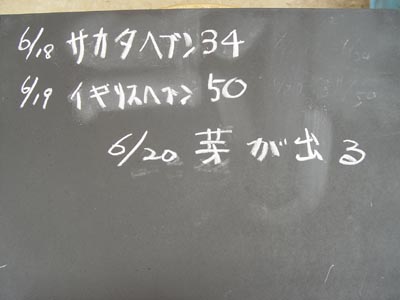 6/18 サカタヘブン34
6/19 イギリスヘブン50
6/20 芽が出る